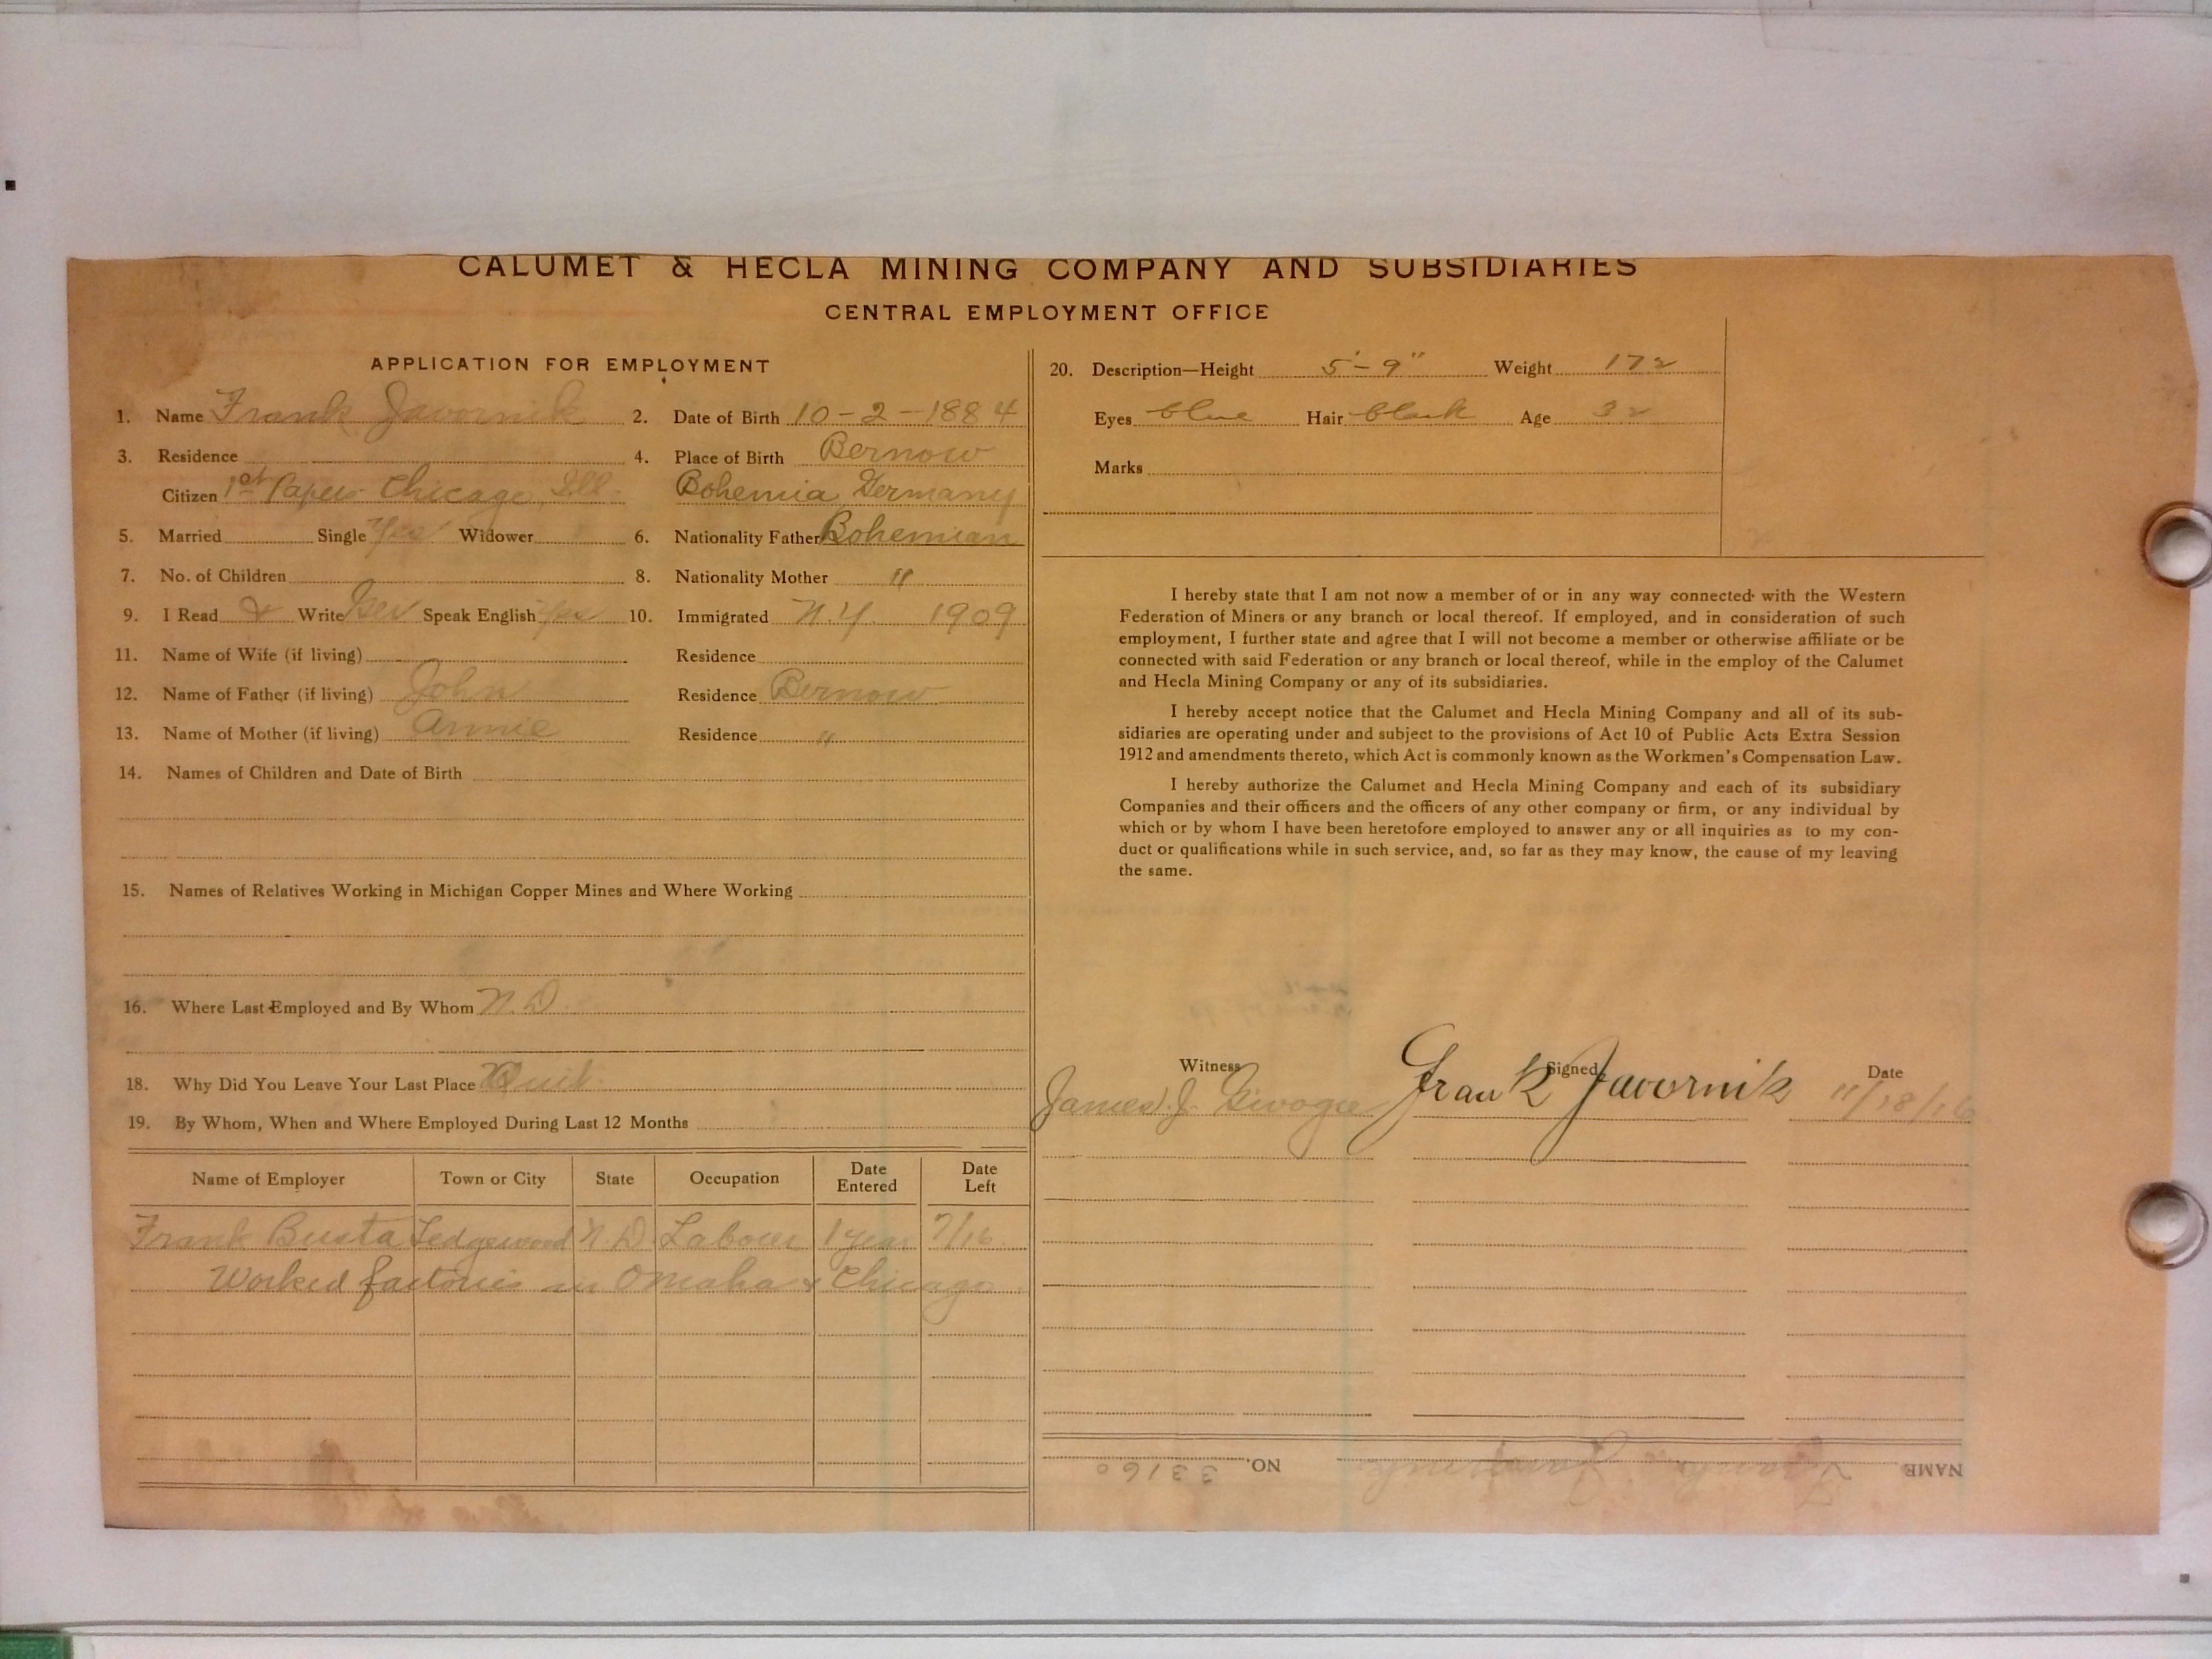 CALUMET & HECLA MINING COMPANY AND SUBSIDIARIES
CENTRAL EMPLOYMENT OFFICE
APPLICATION FOR EMPLOYMENT
1. Name Frank Javornik 2. Date of Birth 10-2-1884
3. Residence 4. Place of Birth Bernow
Citizen 1st Papers Chicago Ill. Bohemia Germany
5. Married Single Yes Widower 6. Nationality Father Bohemian
7. No. of Children 8. Nationality Mother "
9. I Read & Write Speak English Yes 10. Immigrated N.Y. 1909
11. Name of Wife (if living) Residence
12. Name of Father (if living) John Residence Bernow
13. Name of Mother (if living) Annie Residence "
14. Names of Children and Date of Birth
15. Names of Relatives Working in Michigan Copper Mines and Where Working
16. Where Last Employed and By Whom N.D.
18. Why Did You Leave Your Last Place Quit
19. By Whom, When and Where Employed During Last 12 Months
Name of Employer Town or City State Occupation Date Entered Date Left
Frank Busta N.D. Labour 1 year 7/16
Worked factories in Omaha & Chicago
20. Description—Height 5'-9" Weight 172
Eyes blue Hair black Age 32
Marks
I hereby state that I am not now a member of or in any way connected with the Western
Federation of Miners or any branch or local thereof. If employed, and in consideration of such
employment, I further state and agree that I will not become a member or otherwise affiliate or be
connected with said Federation or any branch or local thereof, while in the employ of the Calumet
and Hecla Mining Company or any of its subsidiaries.
I hereby accept notice that the Calumet and Hecla Mining Company and all of its sub-
sidiaries are operating under and subject to the provisions of Act 10 of Public Acts Extra Session
1912 and amendments thereto, which Act is commonly known as the Workmen's Compensation Law.
I hereby authorize the Calumet and Hecla Mining Company and each of its subsidiary
Companies and their officers and the officers of any other company or firm, or any individual by
which or by whom I have been heretofore employed to answer any or all inquiries as to my con-
duct or qualifications while in such service, and, so far as they may know, the cause of my leaving
the same.
Witness Signed Date
James J. Frank Javornik 11/18/16
NAME Frank Javornik NO. 33160